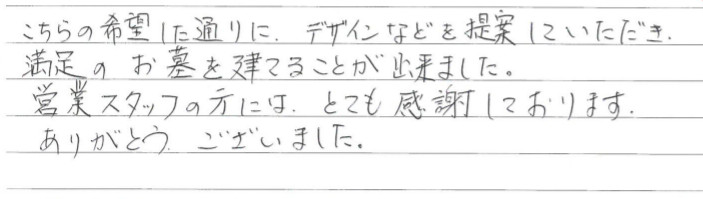 こちらの希望した通りに、デザインなどを提案していただき、
満足のお墓を建てることが出来ました。
営業スタッフの方には、とても感謝しております。
ありがとうございました。